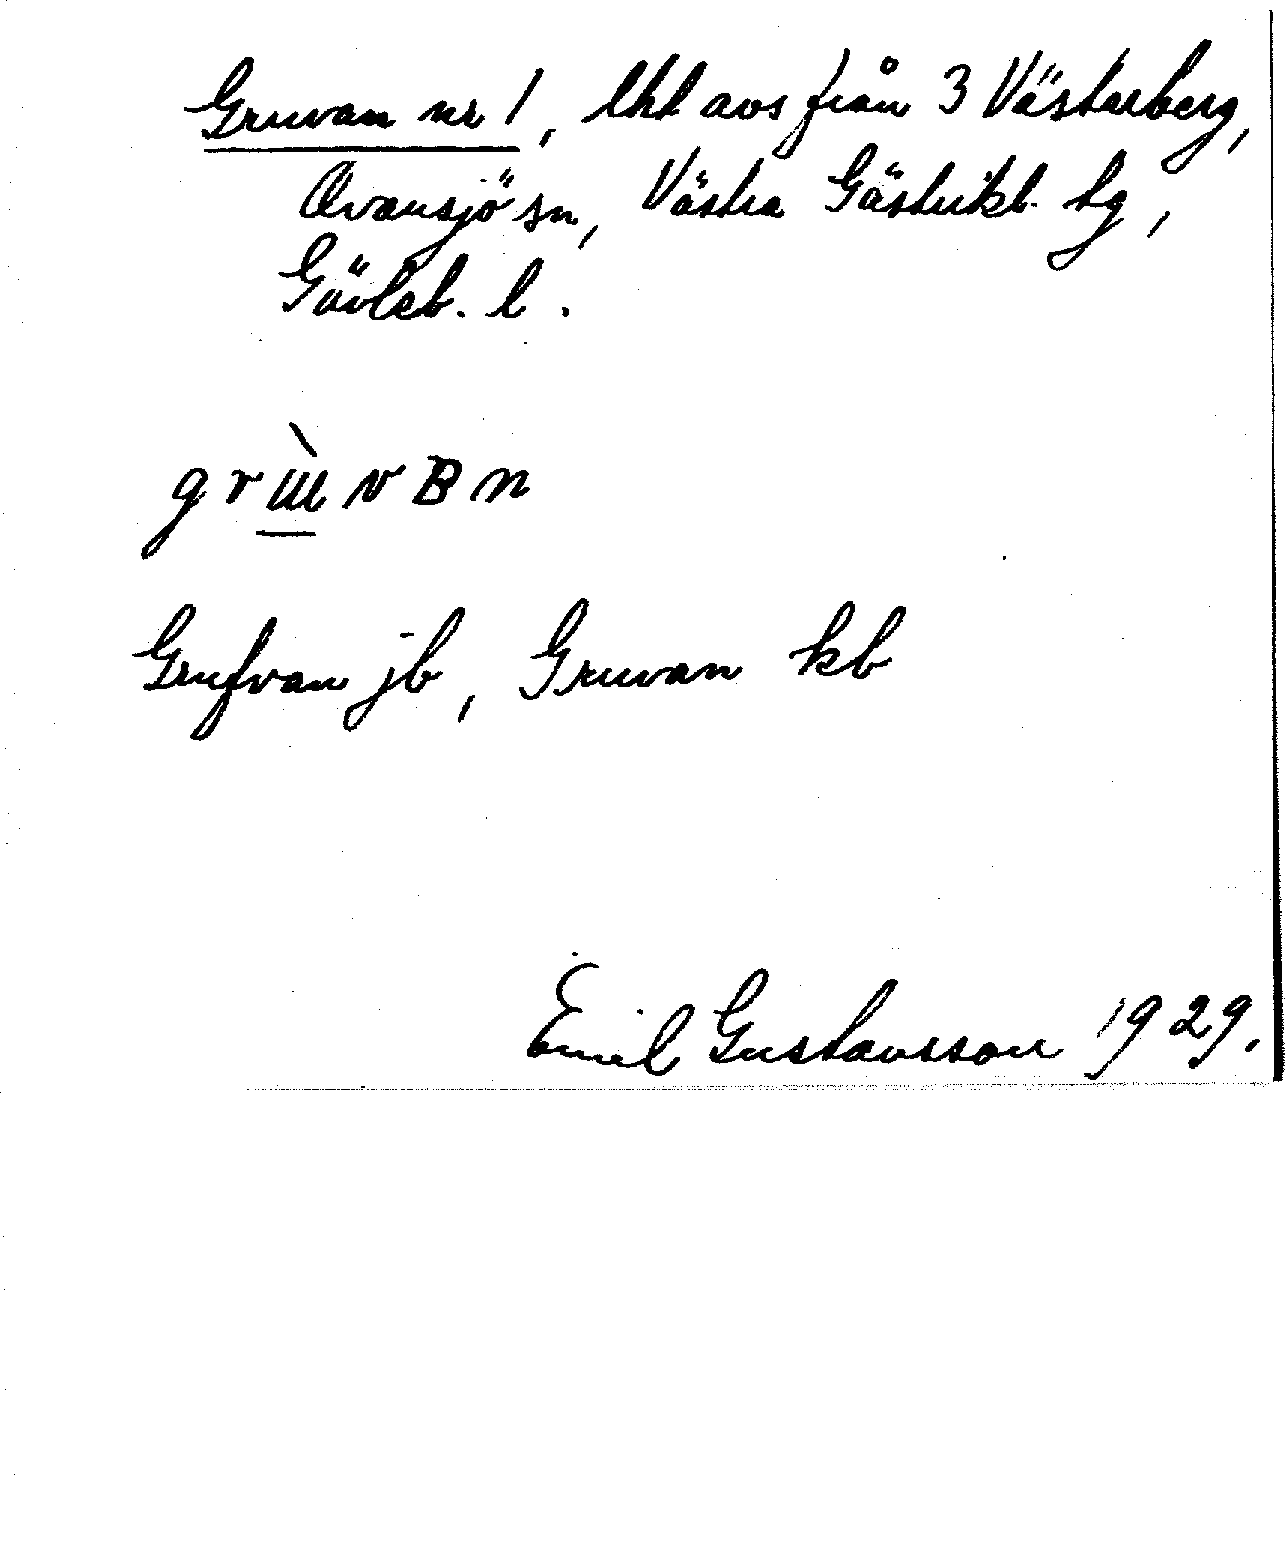 Gruvan nr 1, lht avs från 3 Västerberg,
Ovansjö sn, Västra Gästrikl. tg,
Gävleb. l.
Grufvan jb, Gruvan kb
Emil Gustavsson 1929.